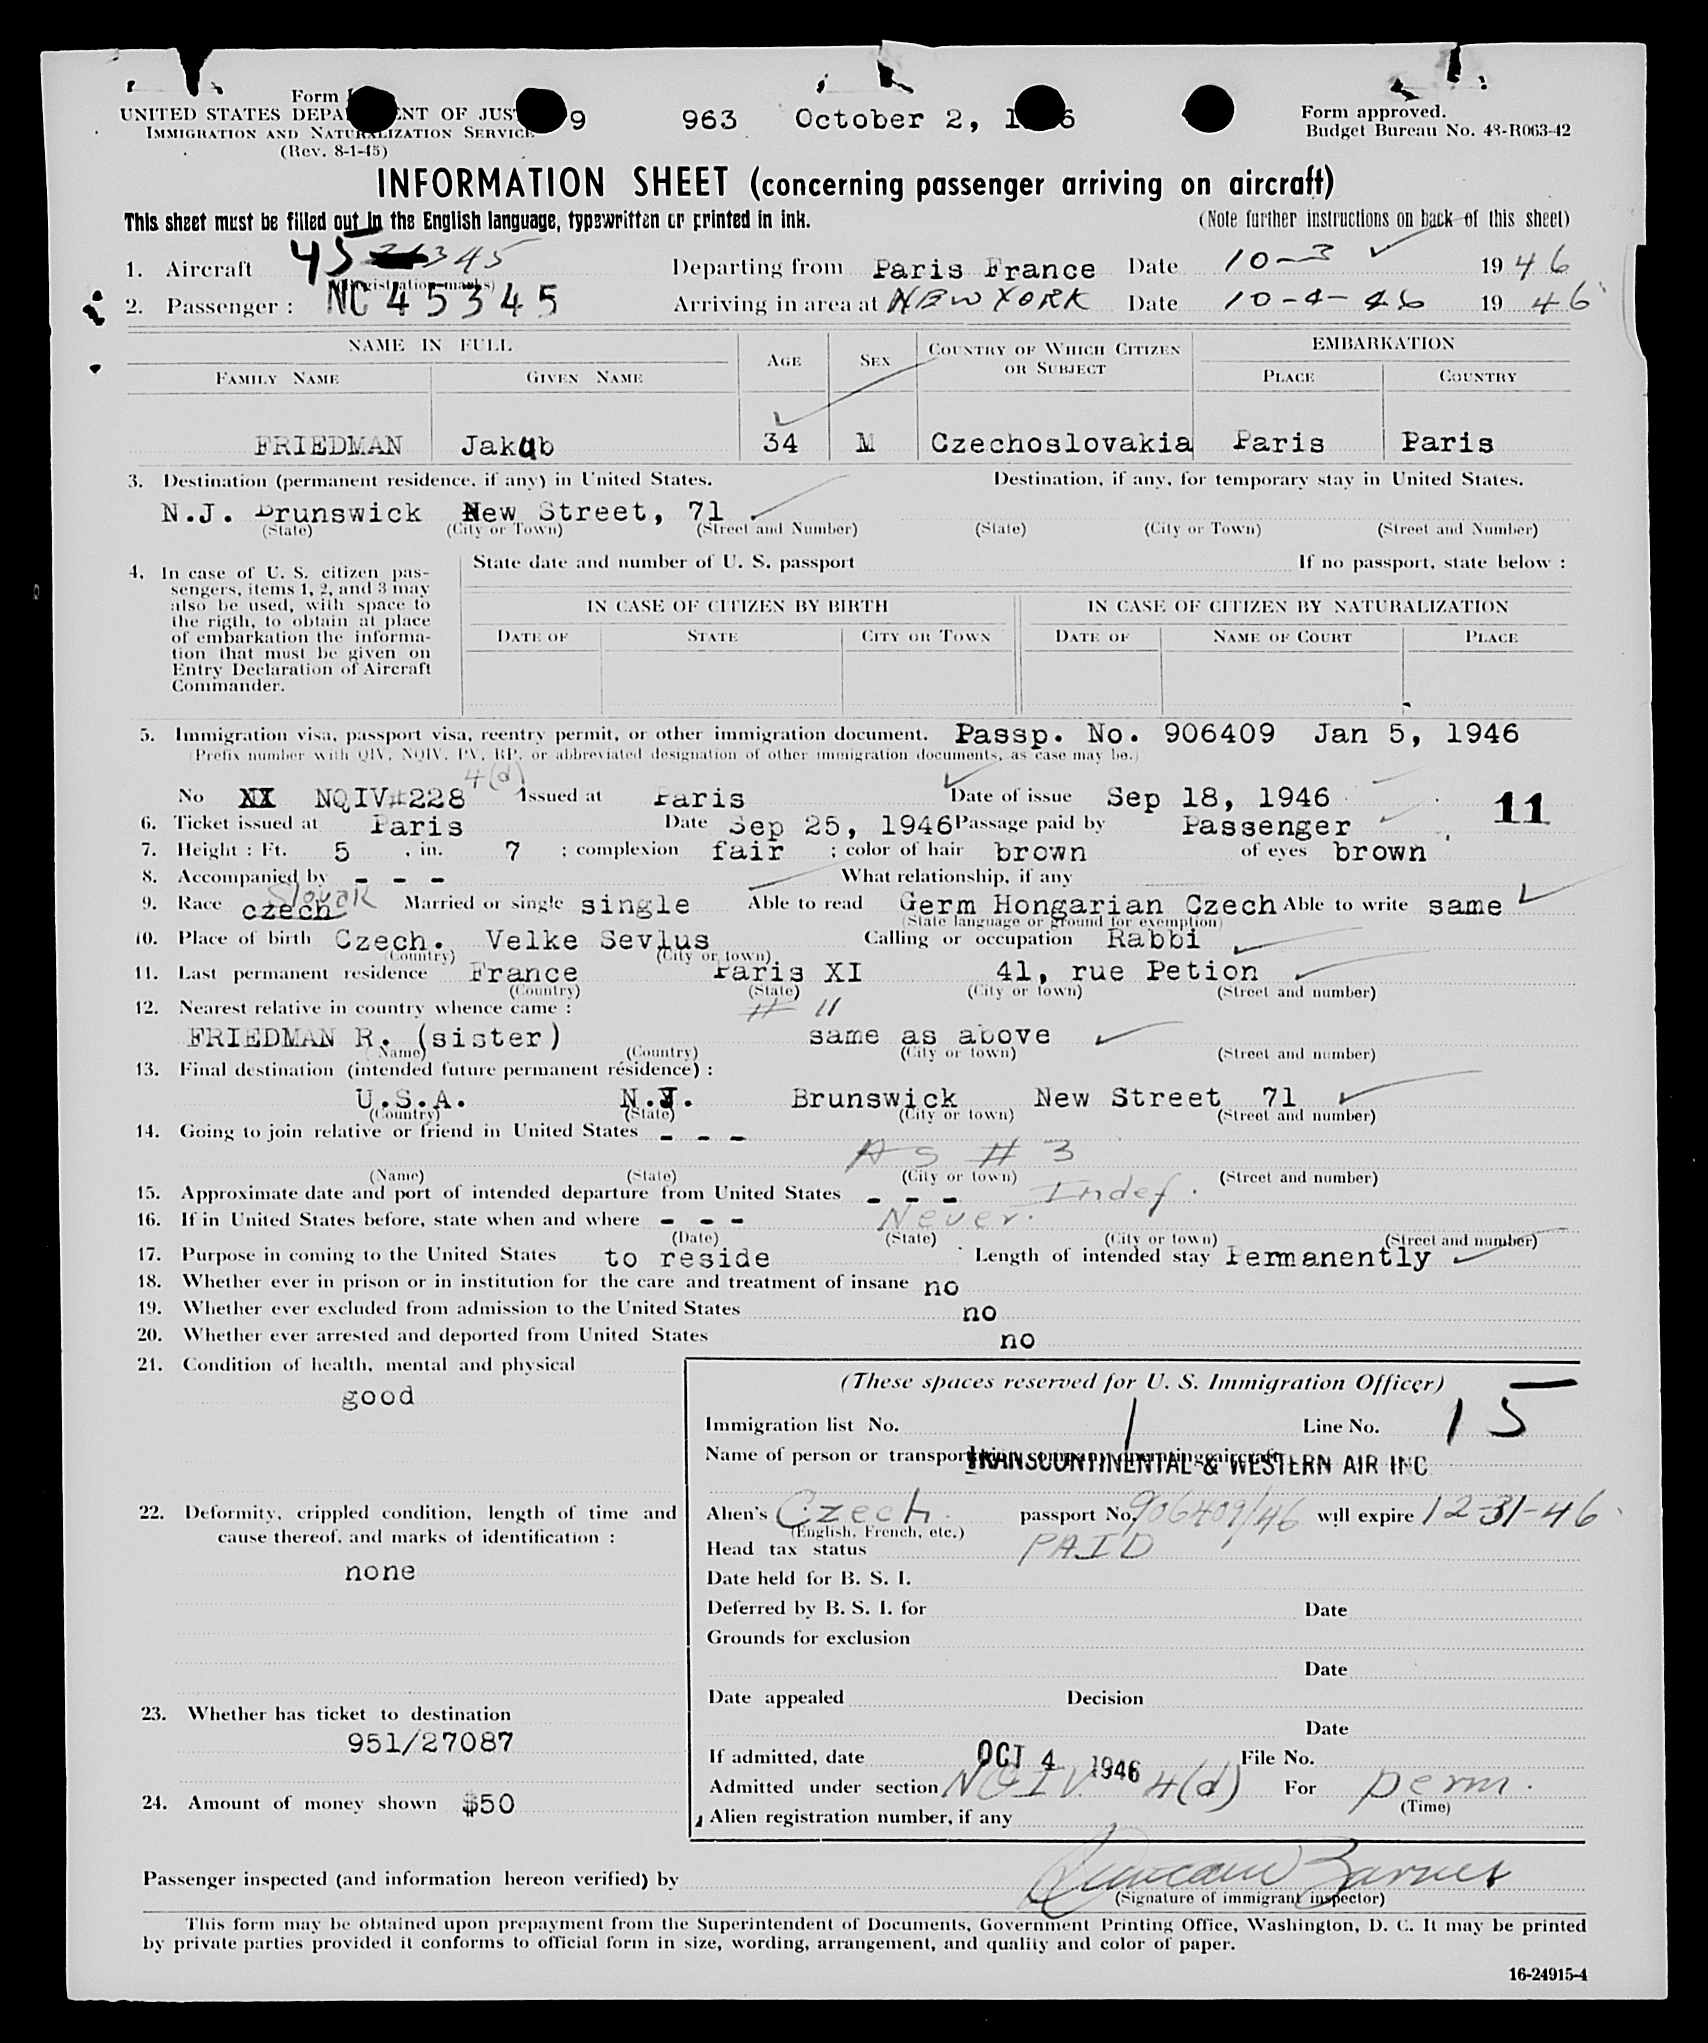 Form
UNITED STATES DEPARTMENT OF JUSTICE 9 963 October 2, 1946 Form approved.
IMMIGRATION AND NATURALIZATION SERVICE Budget Bureau No. 43-R063-42
(Rev. 8-1-45)
INFORMATION SHEET (concerning passenger arriving on aircraft)
This sheet must be filled out in the English language, typewritten or printed in ink. (Note further instructions on back of this sheet)
1. Aircraft 45 345 Departing from Paris France Date 10-3 1946
(Registration marks)
2. Passenger : NC 45345 Arriving in area at NEW YORK Date 10-4-46 1946
NAME IN FULL AGE SEX COUNTRY OF WHICH CITIZEN OR SUBJECT EMBARKATION
FAMILY NAME GIVEN NAME PLACE COUNTRY
FRIEDMAN Jakub 34 M Czechoslovakia Paris Paris
3. Destination (permanent residence, if any) in United States. Destination, if any, for temporary stay in United States.
N.J. Brunswick New Street, 71
(State) (City or Town) (Street and Number) (State) (City or Town) (Street and Number)
4. In case of U. S. citizen pas- State date and number of U. S. passport If no passport, state below :
sengers, items 1, 2, and 3 may
also be used, with space to IN CASE OF CITIZEN BY BIRTH IN CASE OF CITIZEN BY NATURALIZATION
the rigth, to obtain at place
of embarkation the informa- DATE OF STATE CITY OR TOWN DATE OF NAME OF COURT PLACE
tion that must be given on
Entry Declaration of Aircraft
Commander.
5. Immigration visa, passport visa, reentry permit, or other immigration document. Passp. No. 906409 Jan 5, 1946
(Prefix number with QIV, NQIV, PV, RP, or abbreviated designation of other immigration documents, as case may be.)
4(d)
No NQIV#228 Issued at Paris Date of issue Sep 18, 1946 11
6. Ticket issued at Paris Date Sep 25, 1946 Passage paid by Passenger
7. Height : Ft. 5 , in. 7 ; complexion fair ; color of hair brown of eyes brown
8. Accompanied by - - - What relationship, if any
9. Race czech Slovak Married or single single Able to read Germ Hongarian Czech Able to write same
(State language or ground for exemption)
10. Place of birth Czech. Velke Sevlus Calling or occupation Rabbi
(Country) (City or town)
11. Last permanent residence France Paris XI 41, rue Petion
(Country) (State) (City or town) (Street and number)
12. Nearest relative in country whence came : # 11
FRIEDMAN R. (sister) same as above
(Name) (Country) (City or town) (Street and number)
13. Final destination (intended future permanent résidence) :
U.S.A. N.J. Brunswick New Street 71
(Country) (State) (City or town) (Street and number)
14. Going to join relative or friend in United States - - -
AS # 3
(Name) (State) (City or town) (Street and number)
15. Approximate date and port of intended departure from United States - - - Indef.
16. If in United States before, state when and where - - - Never.
(Date) (State) (City or town) (Street and number)
17. Purpose in coming to the United States to reside Length of intended stay Permanently
18. Whether ever in prison or in institution for the care and treatment of insane no
19. Whether ever excluded from admission to the United States no
20. Whether ever arrested and deported from United States no
21. Condition of health, mental and physical
good
(These spaces reserved for U. S. Immigration Officer)
Immigration list No. 1 Line No. 15
Name of person or transportation company operating aircraft TRANSCONTINENTAL & WESTERN AIR INC
22. Deformity, crippled condition, length of time and
cause thereof, and marks of identification :
none
Alien's Czech passport No. 906409/46 will expire 12-31-46
(English, French, etc.)
Head tax status PAID
Date held for B. S. I.
Deferred by B. S. I. for Date
Grounds for exclusion
Date
Date appealed Decision
Date
23. Whether has ticket to destination
951/27087
If admitted, date OCT 4 1946 File No.
Admitted under section NQIV. 4(d) For perm.
(Time)
24. Amount of money shown $50
Alien registration number, if any
Passenger inspected (and information hereon verified) by
(Signature of immigrant inspector)
This form may be obtained upon prepayment from the Superintendent of Documents, Government Printing Office, Washington, D. C. It may be printed
by private parties provided it conforms to official form in size, wording, arrangement, and quality and color of paper.
16-24915-4